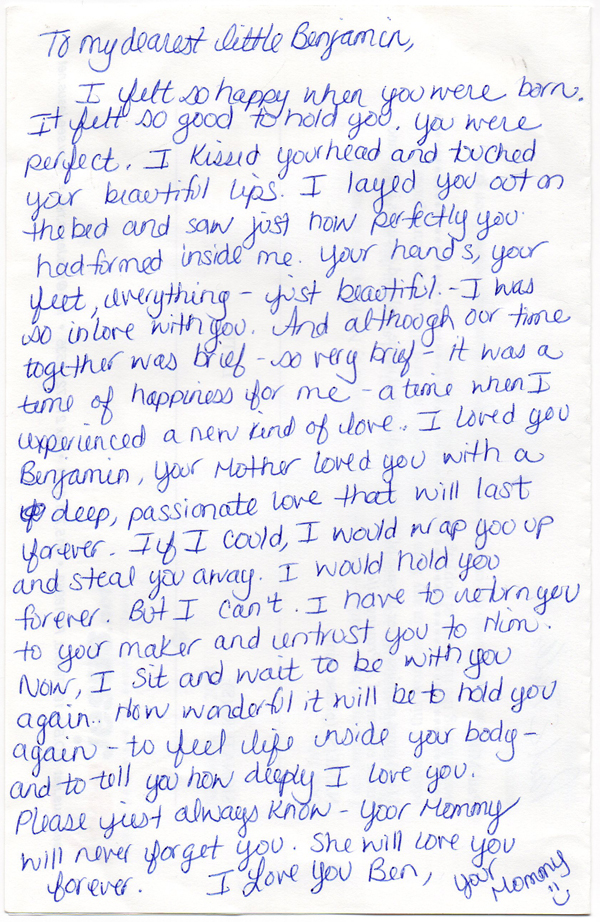 To my dearest little Benjamin,
I felt so happy when you were born.
It felt so good to hold you. You were
perfect. I kissed your head and touched
your beautiful lips. I layed you out on
the bed and saw just how perfectly you
had formed inside me. Your hands, your
feet, everything - just beautiful. - I was
so in love with you. And although our time
together was brief - so very brief - it was a
time of happiness for me - a time when I
experienced a new kind of love. I loved you
Benjamin, your Mother loved you with a
deep, passionate love that will last
forever. If I could, I would wrap you up
and steal you away. I would hold you
forever. But I can't. I have to return you
to your maker and entrust you to Him.
Now, I sit and wait to be with you
again.. How wonderful it will be to hold you
again - to feel life inside your body -
and to tell you how deeply I love you.
Please just always know - your Mommy
will never forget you. She will love you
forever. I Love You Ben, your
Mommy